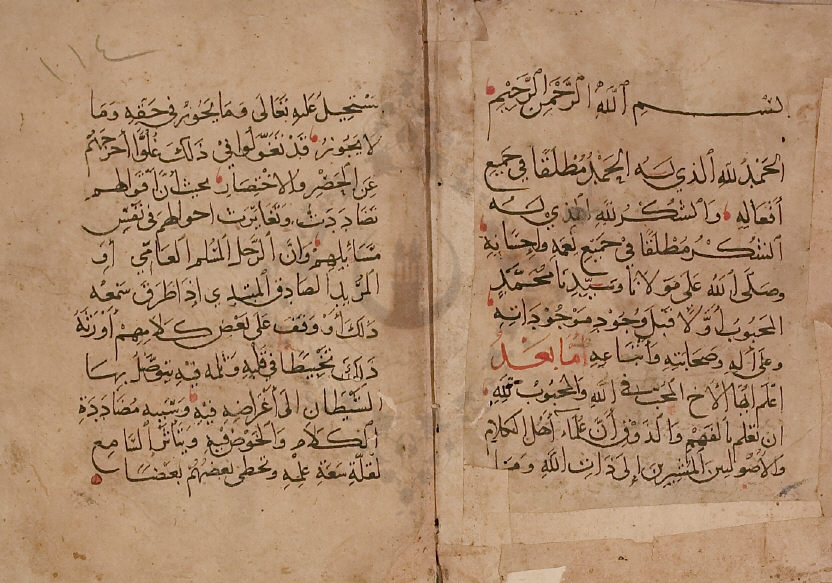 بسم الله الرحمن الرحيم
الحمد لله الذي له الحمد مطلقا في جميع
افعاله والشكر لله الذي له
الشكر مطلقا في جميع نعمه واحسانه
وصلى الله على مولانا وسيدنا محمد
المحبوب اولا قبل وجود موجوداته
وعلى اله وصحابته واتباعه اما بعد
اعلم ايها الاخ المحب في الله والمحبوب لله
ان تعلم بالفهم والذوق ان علماء اهل الكلام
والاصوليين المشيرين الى ذات الله وما
١١٤
يستحيل عليه تعالى وما يجوز في حقه وما
لا يجوز قد تغولوا في ذلك غلوا اخرجهم
عن الحصر والاختصار بحيث ان اقوالهم
تضاددت وتغايرت احوالهم في نفس
مسائلهم وان الرجل المسلم العامي او
المريد الصادق المبتدي اذا طرق سمعه
ذلك او وقف على بعض كلامهم اورثه
ذلك تخبيطا في قلبه وثلمه فيه يتوصل بها
الشيطان الى اغراضه فيه وتشبيه مضاددة
الكلام والخوض فيه ويتاثر السامع
لقلة سعة علمه وتخطي بعضهم بعضا